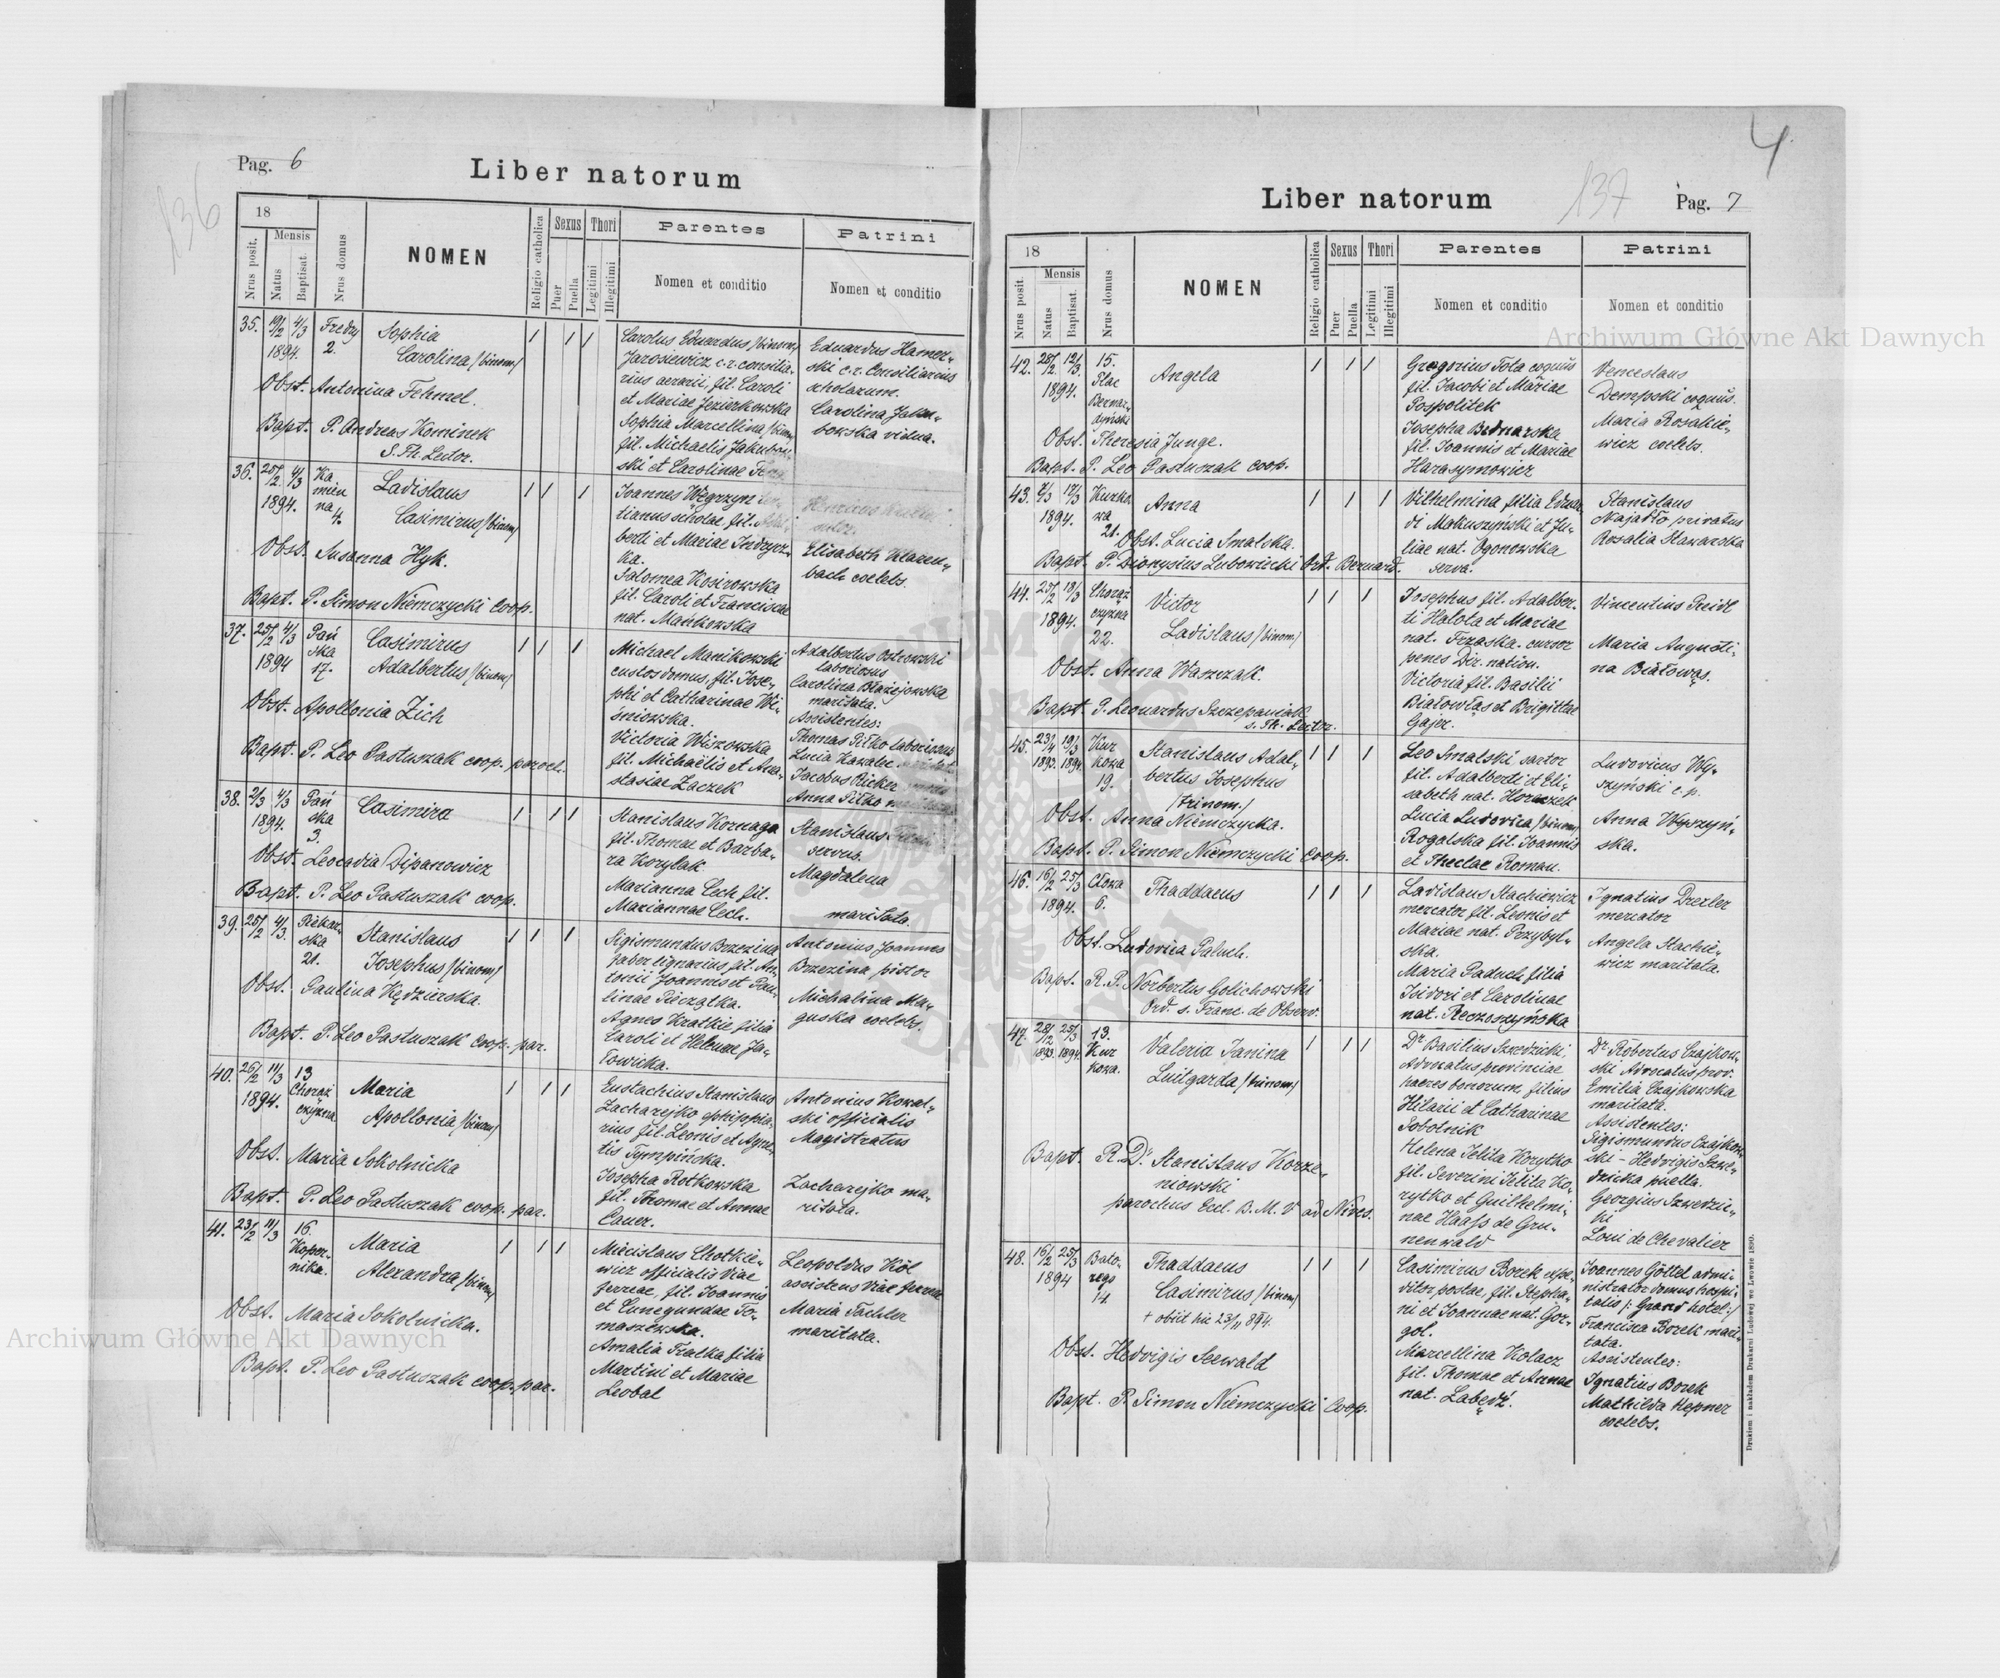 Pag. 6
136
Liber natorum
18
Mensis
Nrus posit.
Natus
Baptisat.
Nrus domus
NOMEN
Religio catholica
Sexus
Puer
Puella
Thori
Legitimi
Illegitimi
Parentes
Nomen et conditio
Patrini
Nomen et conditio
35. 19/2 4/3 1894. Fredry 2.
Sophia
Carolina /binom/
Obst. Antonina Fehmel.
Bapt. P. Andreas Kominek
S. Th. Lector.
Carolus Eduardus /binom/
Jarosiewicz c. r. consilia-
rius aerarii, fil. Caroli
et Mariae Jezierkowska
Sophia Marcellina /binom/
fil. Michaelis Jakubow-
ski et Carolinae
Eduardus Hamer-
ski c. r. Consiliarius
scholarum.
Carolina Jaku-
bowska vidua.
36. 25/2 4/3 1894. Ka
mien
na 4.
Ladislaus
Casimirus /binom/
Obst. Susanna Hyk.
Bapt. P. Simon Niemczycki Coop.
Joannes Węgrzyn
tianus scholae, fil.
berti et Mariae Indrycz-
ka.
Salomea Kosirowska
fil. Caroli et Franciscae
nat. Mańkowska
Elisabeth Klaren-
bach coelebs.
37. 25/2 4/3 1894 Pań
ska
17.
Casimirus
Adalbertus /binom/
Obst. Apollonia Zich
Bapt. P. Leo Pastuszak coop. paroch.
Michael Manikowski
custos domus, fil. Jose-
phi et Catharinae Wi-
śniowska.
Victoria Wiszowska
fil. Michaëlis et Ana-
stasiae Zaczek
Adalbertus Ostrowski
laboriosus
Carolina Błażejowska
maritata.
Assistentes:
Thomas Piłko laboriosus
Lucia Kawalec
Jacobus Ricker
Anna Piłko
38. 2/3 4/3 1894. Pań
ska
3.
Casimira
Obst. Leocadia Dipanowicz
Bapt. P. Leo Pastuszak coop.
Stanislaus Kornaga
fil. Thomae et Barba-
ra Korylak
Marianna Cech fil.
Mariannae Cech.
Stanislaus
servus.
Magdalena
maritata.
39. 25/2 4/3. Piekar-
ska
21.
Stanislaus
Josephus /binom/
Obst. Paulina Kędzierska.
Bapt. P. Leo Pastuszak coop. par.
Sigismundus Brzezina
faber lignarius, fil. An-
tonii Joannis et Pau-
linae Pieczątka.
Agnes Kratkie filia
Caroli et Helenae Ja-
łowicka.
Antonius Joannes
Brzezina pistor
Michalina Ma-
guska coelebs.
40. 26/2 11/3 1894. 13
Chorąż
czyzna
Maria
Apollonia /binom/
Obst. Maria Sokolnicka
Bapt. P. Leo Pastuszak coop. par.
Eustachius Stanislaus
Zacharejko ephippia-
rius fil. Leonis et Agne-
tis Tympińska.
Josepha Rotkowska
fil. Thomae et Annae
Cauer.
Antonius Kowal-
ski officialis
Magistratus
Zacharejko ma-
ritata.
41. 23/2 11/3 16.
Koper-
nika.
Maria
Alexandra /binom/
Obst. Maria Sokolnicka.
Bapt. P. Leo Pastuszak coop. par.
Miecislaus Chotkie-
wicz officialis Viae
ferreae, fil. Joannis
et Cunegundae To-
maszewska.
Amalia Fratka filia
Martini et Mariae
Leobal
Leopoldus Köl
assistens Viae ferreae
Maria Tachler
maritata.
4
Liber natorum
137
Pag. 7
18
Mensis
Nrus posit
Natus
Baptisat.
Nrus domus
NOMEN
Religio catholica
Sexus
Puer
Puella
Thori
Legitimi
Illegitimi
Parentes
Nomen et conditio
Patrini
Nomen et conditio
42. 25/2. 12/3. 1894. 15.
Plac
Bernar-
dyński
Angela
Obst. Theresia Junge.
Bapt. P. Leo Pastuszak coop.
Gregorius Tota coquus
fil. Jacobi et Mariae
Pospolitek
Josepha Bednarska
fil. Joannis et Mariae
Harasymowicz
Venceslaus
Dempski coquus.
Maria Rosakie-
wicz coelebs.
43. 7/3 17/3 1894. Kurko
wa
21.
Anna
Obst. Lucia Smalska.
Bapt. P. Dionysius Lubowiecki Ord. Bernard.
Vilhelmina filia Eduar-
di Makuszyński et Ju-
liae nat. Ogonowska
serva.
Stanislaus
Najadło privatus
Rosalia Skawarska
44. 25/2 18/3 1894. Chorąż
czyzna
22.
Victor
Ladislaus /binom/
Obst. Anna Waszczak.
Bapt. P. Leonardus Szczepaniak
s. Th. Lector.
Josephus fil. Adalber-
ti Hałota et Mariae
nat. Frzaska. cursor
penes Dir. nation.
Victoria fil. Basilii
Białowląs et Brigittae
Gajer.
Vincentius Preidl
Maria Augusti-
na Białowąs.
45. 23/4 1893. 19/3 1894. Kur
kowa
19.
Stanislaus Adal-
bertus Josephus
/trinom./
Obst. Anna Niemczycka.
Bapt. P. Simon Niemczycki Coop.
Leo Smalski sartor
fil. Adalberti et Eli-
sabeth nat. Horaczek
Lucia Ludovica /binom/
Rogalska fil. Joannis
et Theclae Roman.
Ludovicus Wy-
szyński c. p.
Anna Wyrzyń-
ska.
46. 16/2 25/3 1894. Cłowa
6.
Thaddaeus
Obst. Ludovica Paluch.
Bapt. R. P. Norbertus Golichowski
Ord. s. Franc. de Observ.
Ladislaus Stachiewicz
mercator fil. Leonis et
Mariae nat. Przybyl-
ska.
Maria Paduch filia
Isidori et Carolinae
nat. Reczoszyńska
Ignatius Drexler
mercator
Angela Stachie-
wicz maritata.
47. 28/12 1893. 25/3 1894. 13.
Kur
kowa.
Valeria Janina
Luitgarda /trinom/
Bapt. R. D. Stanislaus Korze-
niowski
parochus Eccl. B. M. V. ad Nives.
Dr Basilius Szwedzicki,
Advocatus provinciae
haeres bonorum, filius
Hilarii et Catharinae
Sobolnik
Helena Jelita Korytko
fil. Severini Jelita Ko-
rytko et Guilhelmi-
nae Haass de Gru-
nenwald
Dr. Robertus Czajkow-
ski Advocatus prov.
Emilia Czajkowska
maritata.
Assistentes:
Sigismundus Czajkow-
ski – Hedvigis Szwe-
dzicka puella.
Georgius Szwedzic-
ki
Loui de Chevalier
48. 16/2 25/3 1894 Bato-
rego
14
Thaddaeus
Casimirus /binom/
+ obiit hic 23/11 894.
Obst. Hedvigis Seewald
Bapt. P. Simon Niemczycki Coop.
Casimirus Borek expe-
ditor postae, fil. Stepha-
ni et Joannae nat. Gor-
gol.
Marcellina Kolacz
fil. Thomae et Annae
nat. Łabędź.
Joannes Göttel admi-
nistrator domus hospi-
talis /: Grand hotel :/
Francisca Borek mari-
tata.
Assistentes:
Ignatius Borek
Mathilda Hepner
coelebs.
Drukiem i nakładem Drukarni Ludowej we Lwowie 1890.
Archiwum Główne Akt Dawnych
Archiwum Główne Akt Dawnych